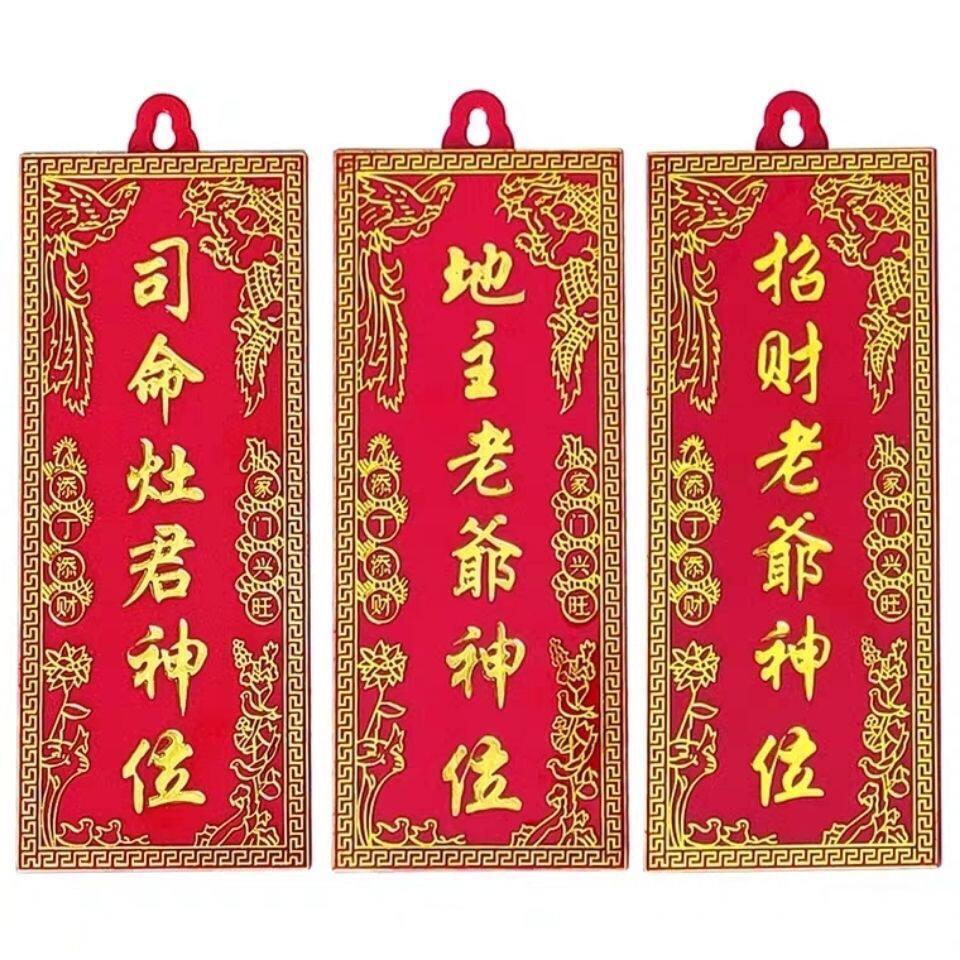 司命灶君神位
添丁添财
家门兴旺
地主老爷神位
添丁添财
家门兴旺
招财老爷神位
添丁添财
家门兴旺